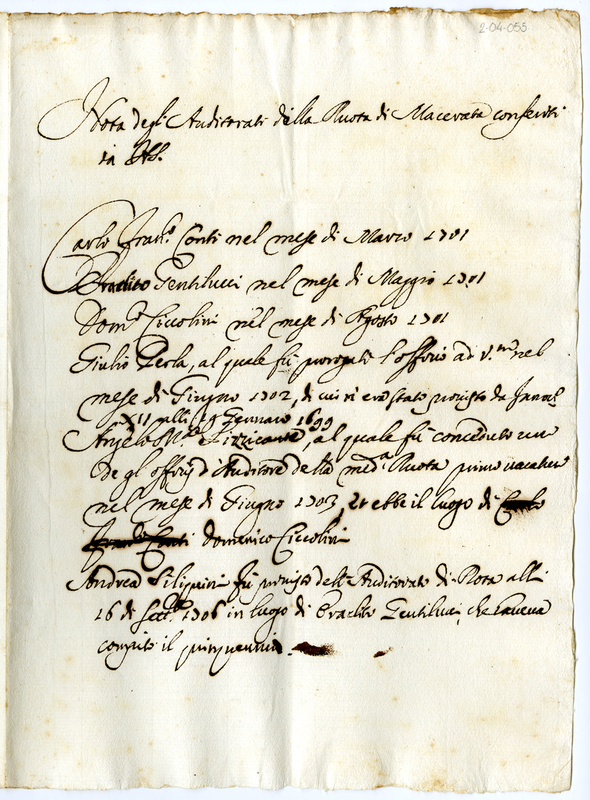 2-04-055
Nota degli Auditorati della Ruota di Macerata conferiti
in
Carlo Fran.co Conti nel mese di Marzo 1701
Eraclito Gentilucci nel mese di Maggio 1701
Dom.co Ciccolini nel mese di Agosto 1701
Giulio Perla, al quale fù prorogato l'offitio ad nel
mese di Giugno 1702, di cui n'era stato provisto da Innoc.
XII alli 19 Gennaro 1699
Angelo M.a, al quale fù conceduto un
de gl'offitij d'Auditore della med.a Ruota primo
nel mese di Giugno 1703, et ebbe il luogo di Carlo
Fran.co Conti Domenico Ciccolini
Andrea Filippini fù provisto dell'Auditorato di Rota alli
16 di Sett.e 1706 in luogo di Eraclito Gentilucci, che haveva
compito il quinquennio